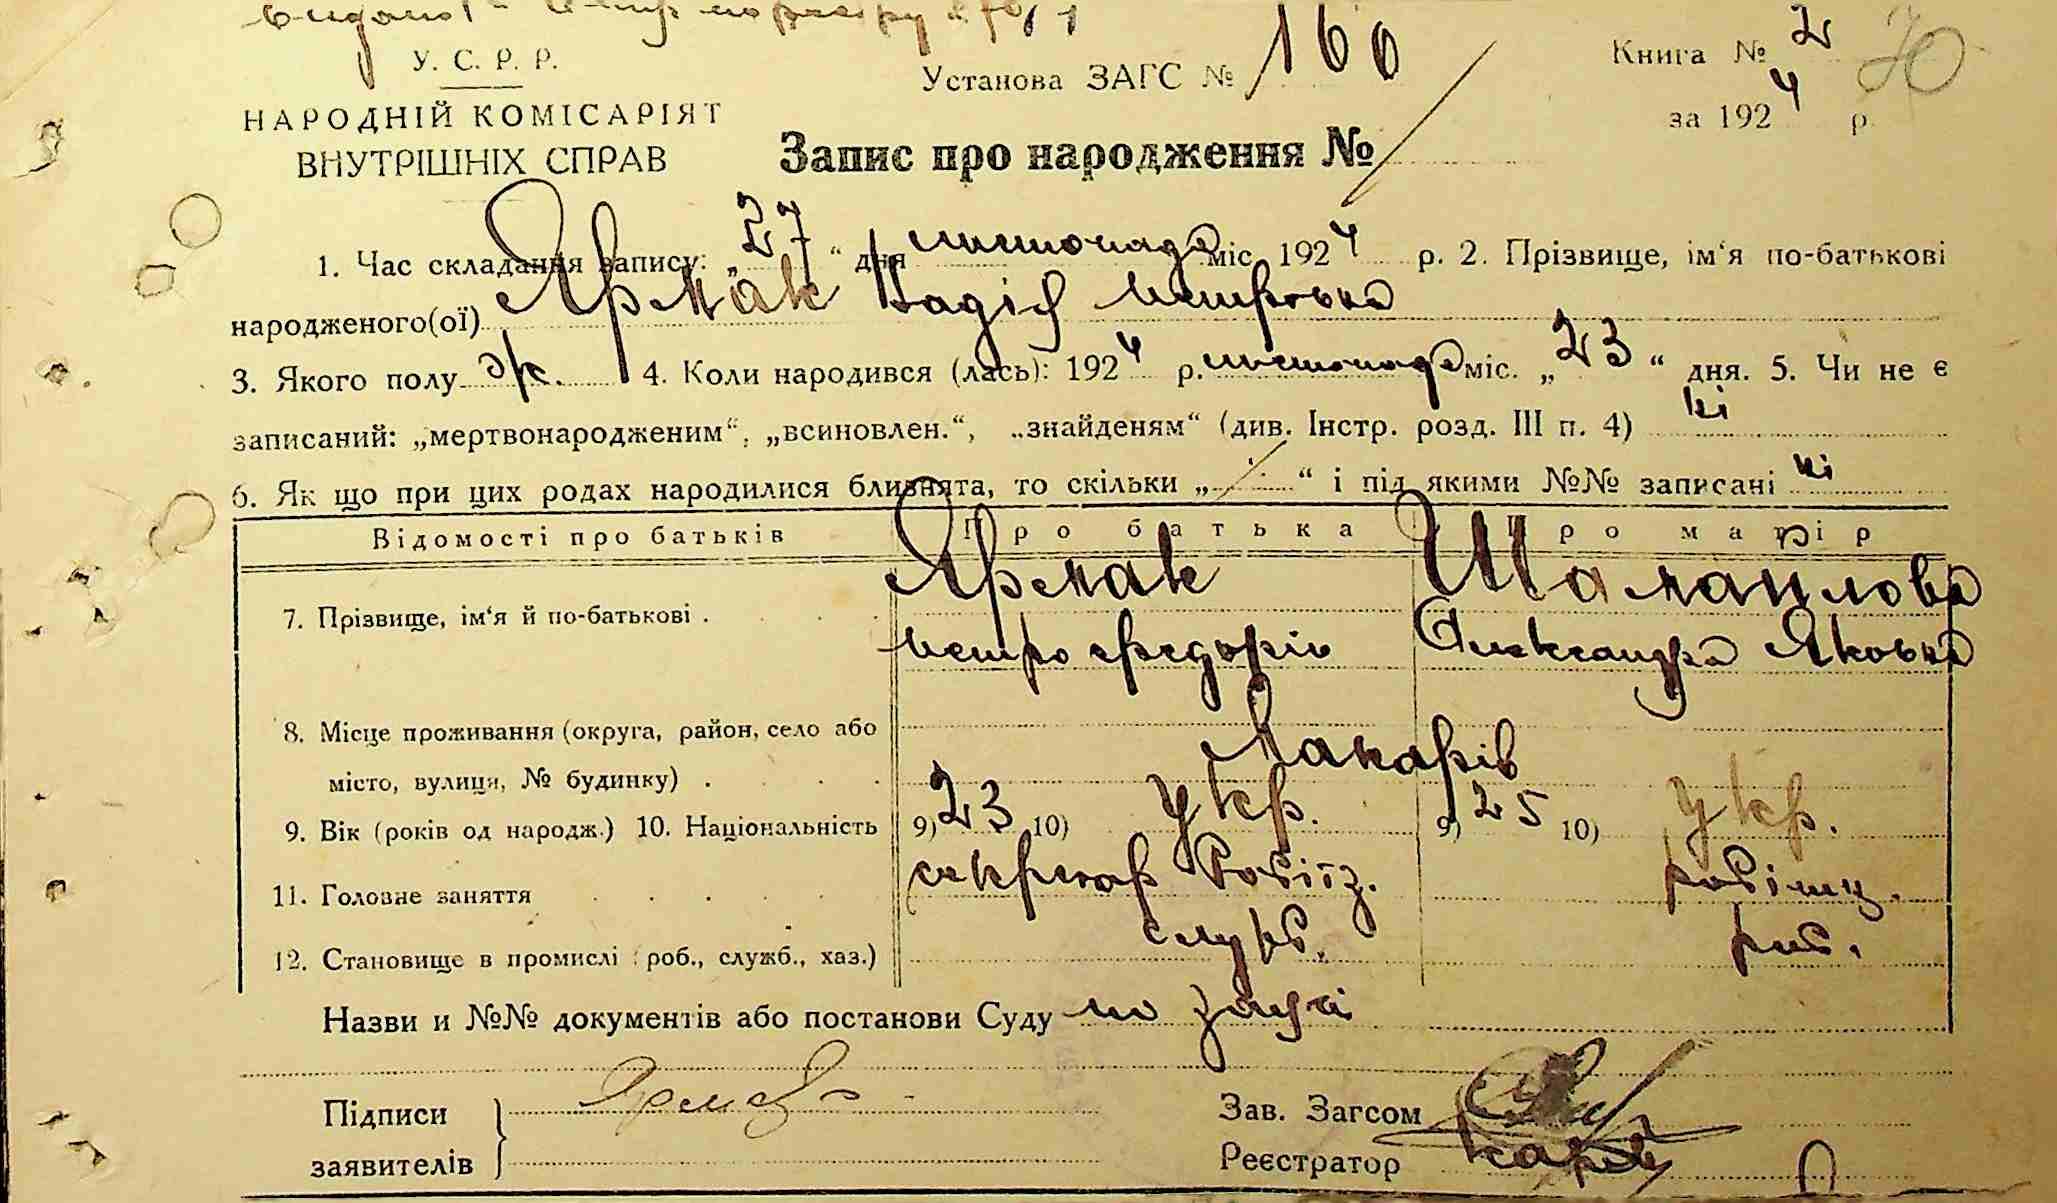 У. С. Р. Р.
НАРОДНІЙ КОМІСАРІЯТ
ВНУТРІШНІХ СПРАВ
Установа ЗАГС № 160
Книга № 2
70
за 1924 р.
Запис про народження №
1. Час складання запису: „27“ дня листопада міс. 1924 р. 2. Прізвище, ім‘я по-батькові
народженого(ої) Ярмак Надія Петровна
3. Якого полу ж. 4. Коли народився (лась): 1924 р. листопада міс. „23“ дня. 5. Чи не є
записаний: „мертвонародженим“, „всиновлен.“, „знайденям“ (див. Інстр. розд. III п. 4) ні
6. Як що при цих родах народилися близнята, то скільки „ “ і під якими №№ записані ні
Відомості про батьків Про батька Про матір
7. Прізвище, ім‘я й по-батькові . Ярмак Шамаилова
Петро Федорів Олександра Яковна
8. Місце проживання (округа, район, село або
місто, вулиця, № будинку) . Макарів
9. Вік (років од народж.) 10. Національність 9) 23 10) Укр. 9) 25 10) Укр.
11. Головне заняття секретар робітн.
12. Становище в промислі (роб., служб., хаз.) служб. роб.
Назви и №№ документів або постанови Суду по заяві
Підписи
заявителів
Ярмак
Зав. Загсом
Реєстратор